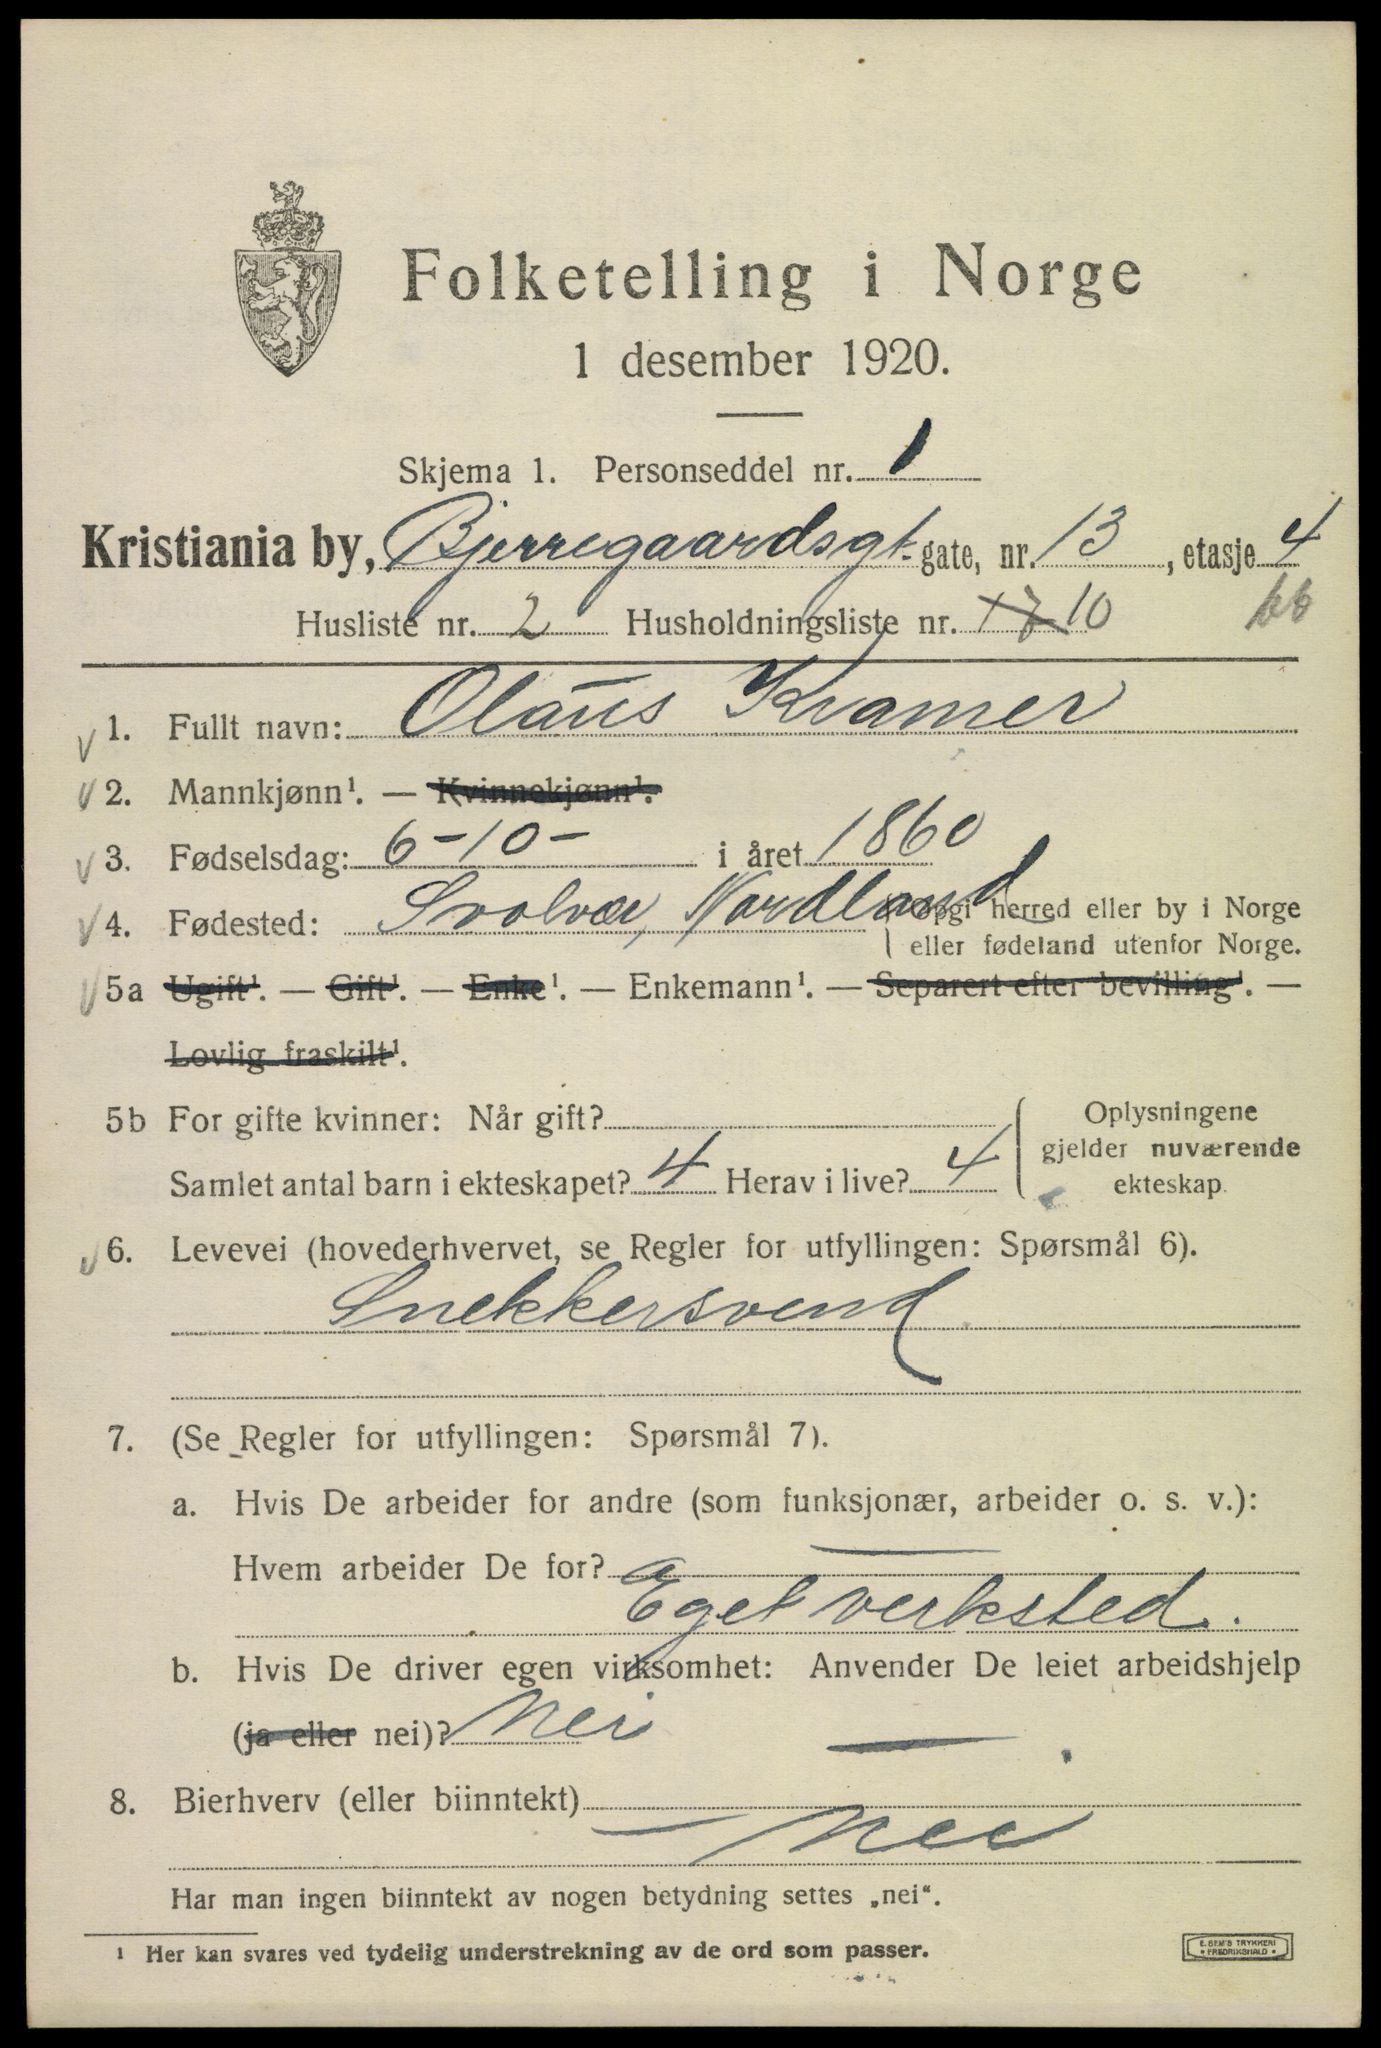 Folketelling i Norge
1 desember 1920.
Skjema 1. Personseddel nr. 1
Kristiania by, Bjerregaardsgt. gate, nr. 13, etasje 4
Husliste nr. 2 Husholdningsliste nr. 17 10 bb
1. Fullt navn: Olaus Kramer
2. Mannkjønn¹. — Kvinnekjønn¹.
3. Fødselsdag: 6-10- i året 1860
4. Fødested: Svolvær, Nordland Opgi herred eller by i Norge
eller fødeland utenfor Norge.
5a Ugift¹. — Gift¹. — Enke¹. — Enkemann¹. — Separert efter bevilling¹. —
Lovlig fraskilt¹.
5b For gifte kvinner: Når gift? Oplysningene
gjelder nuværende
Samlet antal barn i ekteskapet? 4 Herav i live? 4 ekteskap.
6. Levevei (hovederhvervet, se Regler for utfyllingen: Spørsmål 6).
Snekkersvend
7. (Se Regler for utfyllingen: Spørsmål 7).
a. Hvis De arbeider for andre (som funksjonær, arbeider o. s. v.):
Hvem arbeider De for? —
Eget verksted.
b. Hvis De driver egen virksomhet: Anvender De leiet arbeidshjelp
(ja eller nei)? Nei —
8. Bierhverv (eller biinntekt)
— Nei
Har man ingen biinntekt av nogen betydning settes „nei“.
¹ Her kan svares ved tydelig understrekning av de ord som passer.
E. SEM'S TRYKKERI
FREDRIKSHALD